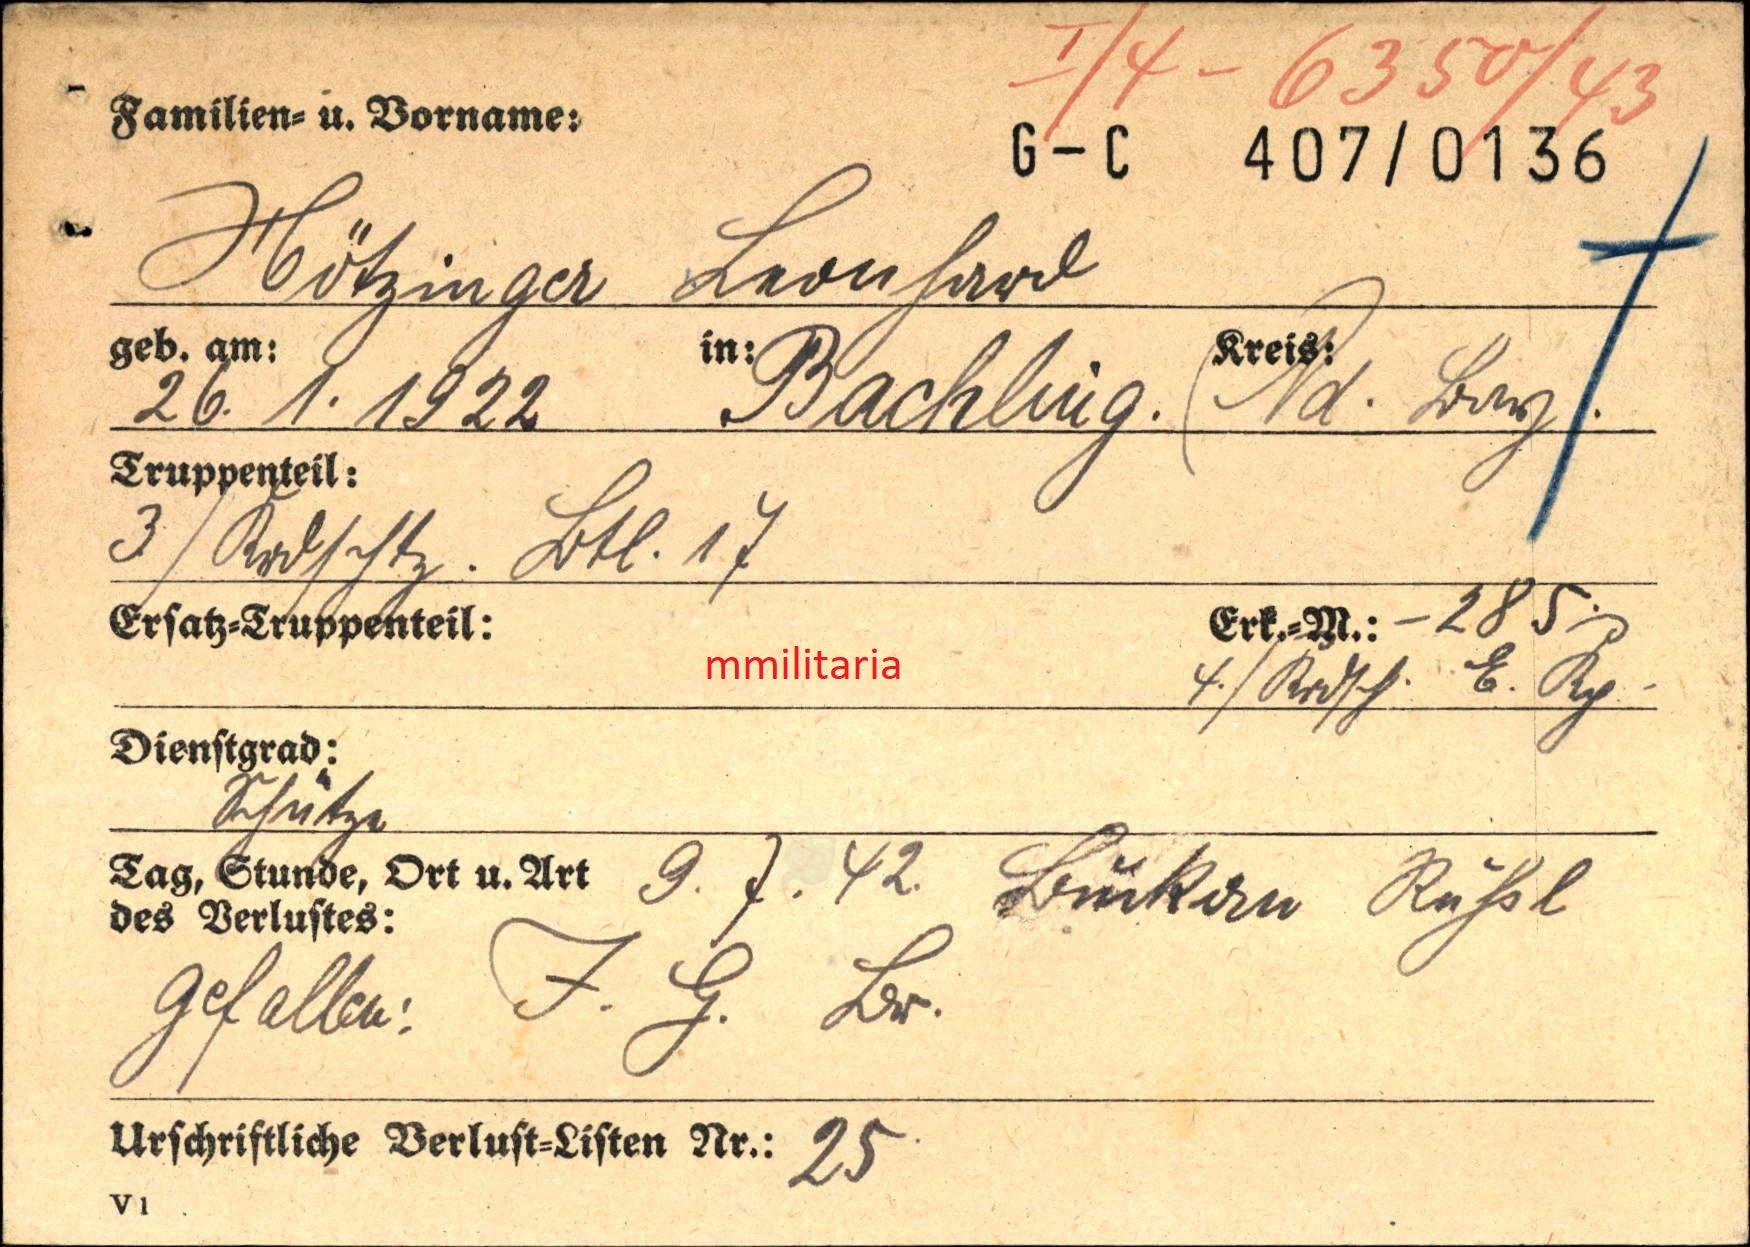 I/4 - 6350/43
Familien- u. Vorname:
G-C 407/0136
Hötzinger Leonhard
geb. am: in: Kreis:
26. 1. 1922 Bachling. (Nd. Bay.
Truppenteil:
3/Krdschtz. Btl. 17
Ersatz-Truppenteil: Erk.-M.: -285-
mmilitaria
4./Krdsch. E. Kp.
Dienstgrad:
Schütze
Tag, Stunde, Ort u. Art 9. 7. 42
des Verlustes:
gefallen: I. G. Br.
Urschriftliche Verlust-Listen Nr.: 25
V 1